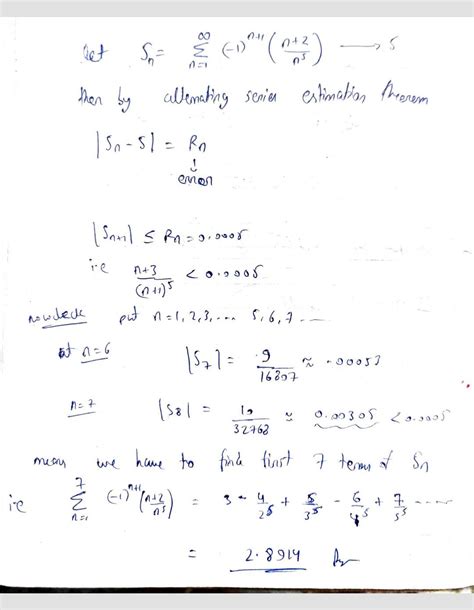 Let Sₙ = ∑_{n=1}^{∞} (-1)^{n+1} (n+2 / n⁵) → S
then by alternating series estimation theorem
|Sₙ - S| = Rₙ
↓
error
|Sₙ₊₁| ≤ Rₙ = 0.0005
i.e n+3 / (n+1)⁵ < 0.0005
put n = 1, 2, 3, .... 5, 6, 7 ...
at n=6 |S₇| = 9 / 16807 ≈ .00053
n=7 |S₈| = 10 / 32768 ≈ 0.00305 < 0.0005
means we have to find first 7 terms of Sₙ
i.e ∑_{n=1}^{7} (-1)^{n+1} (n+2 / n⁵) = 3 - 4/2⁵ + 5/3⁵ - 6/4⁵ + 7/5⁵ ....
= 2.8914